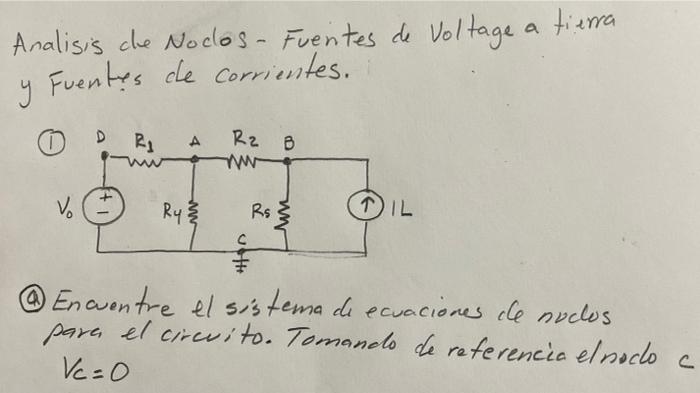 Analisis de Nodos - Fuentes de Voltage a tierra
y Fuentes de corrientes.
① D R1 A R2 B
Vo + - R4 R5 ↑ IL
C
ⓐ Encuentre el sistema de ecuaciones de nodos
para el circuito. Tomando de referencia el nodo c
Vc=0